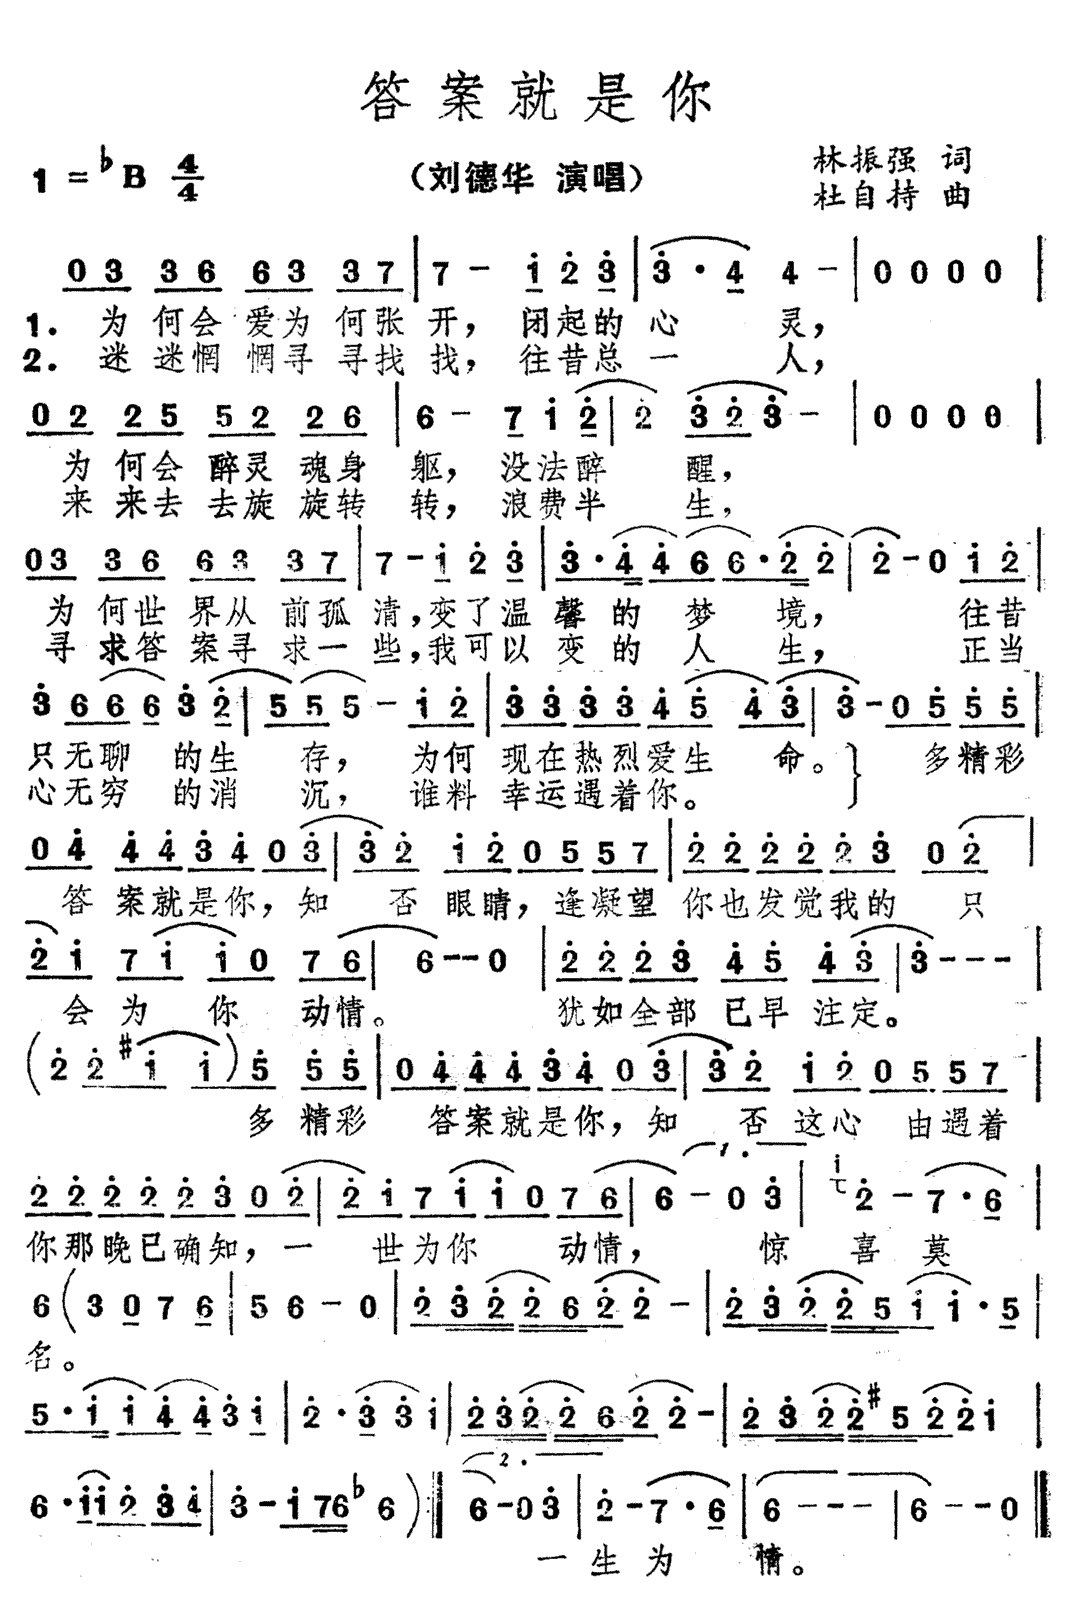 答案就是你
1=♭B 4/4 (刘德华 演唱) 林振强 词
杜自持 曲
03 36 63 37 | 7 - i̇ 2̇ 3̇ | 3̇ · 4̇ 4 - | 0 0 0 0 |
1. 为 何会 爱为 何张 开, 闭起的 心 灵,
2. 迷 迷惘 惘寻 寻找 找, 往昔总 一 人,
02 25 52 26 | 6 - 7 i̇ 2̇ | 2̇ 3̇ 2̇ 3̇ - | 0 0 0 0 |
为 何会 醉灵 魂身 躯, 没法醉 醒,
来 来去 去旋 旋转 转, 浪费半 生,
03 36 63 37 | 7 - i̇ 2̇ 3̇ | 3̇ · 4̇ 4̇ 6̇ 6̇ · 2̇ 2̇ | 2̇ - 0 i̇ 2̇ |
为 何世 界从 前孤 清,变了温 馨的 梦 境, 往昔
寻 求答 案寻 求一 些,我可以 变的 人 生, 正当
3̇ 6 6 6 3̇ 2̇ | 5 5 5 - i̇ 2̇ | 3̇ 3̇ 3̇ 3̇ 4̇ 5̇ 4̇ 3̇ | 3̇ - 0 5̇ 5̇ 5̇ |
只无聊 的生 存, 为何 现在热烈爱生 命。 多精彩
心无穷 的消 沉, 谁料 幸运遇着你。
0 4̇ 4̇ 4̇ 3̇ 4̇ 0 3̇ | 3̇ 2̇ i̇ 2̇ 0 5 5 7 | 2̇ 2̇ 2̇ 2̇ 2̇ 3̇ 0 2̇ |
答 案就是你, 知 否 眼睛, 逢凝望 你也发觉我的 只
2̇ i̇ 7 i̇ i̇ 0 7 6 | 6 - - 0 | 2̇ 2̇ 2̇ 3̇ 4̇ 5̇ 4̇ 3̇ | 3̇ - - - |
会 为 你 动情。 犹如全部 已早 注定。
(2̇ 2̇ #i̇ i̇) 5̇ 5̇ 5̇ | 0 4̇ 4̇ 4̇ 3̇ 4̇ 0 3̇ | 3̇ 2̇ i̇ 2̇ 0 5 5 7
多 精彩 答案就是你, 知 否 这心 由遇着
1.
2̇ 2̇ 2̇ 2̇ 2̇ 3̇ 0 2̇ | 2̇ i̇ 7 i̇ i̇ 0 7 6 | 6 - 0 3̇ | i̇ 2̇ - 7 · 6̇ |
你那晚已确知, 一 世为你 动情, 惊 喜 莫
6 (3 0 7 6 | 5 6 - 0 | 2̇ 3̇ 2̇ 2̇ 6 2̇ 2̇ - | 2̇ 3̇ 2̇ 2̇ 5 i̇ i̇ · 5 |
名。
5 · i̇ i̇ 4̇ 4̇ 3̇ i̇ | 2̇ · 3̇ 3̇ i̇ | 2̇ 3̇ 2̇ 2̇ 6 2̇ 2̇ - | 2̇ 3̇ 2̇ 2̇ #5 2̇ 2̇ i̇ |
2.
6 · i̇ i̇ 2̇ 3̇ 4̇ | 3̇ - i̇ 7 6 ♭6) :| 6 - 0 3̇ | 2̇ - 7 · 6 | 6 - - - | 6 - - 0 ‖
一 生 为 情。